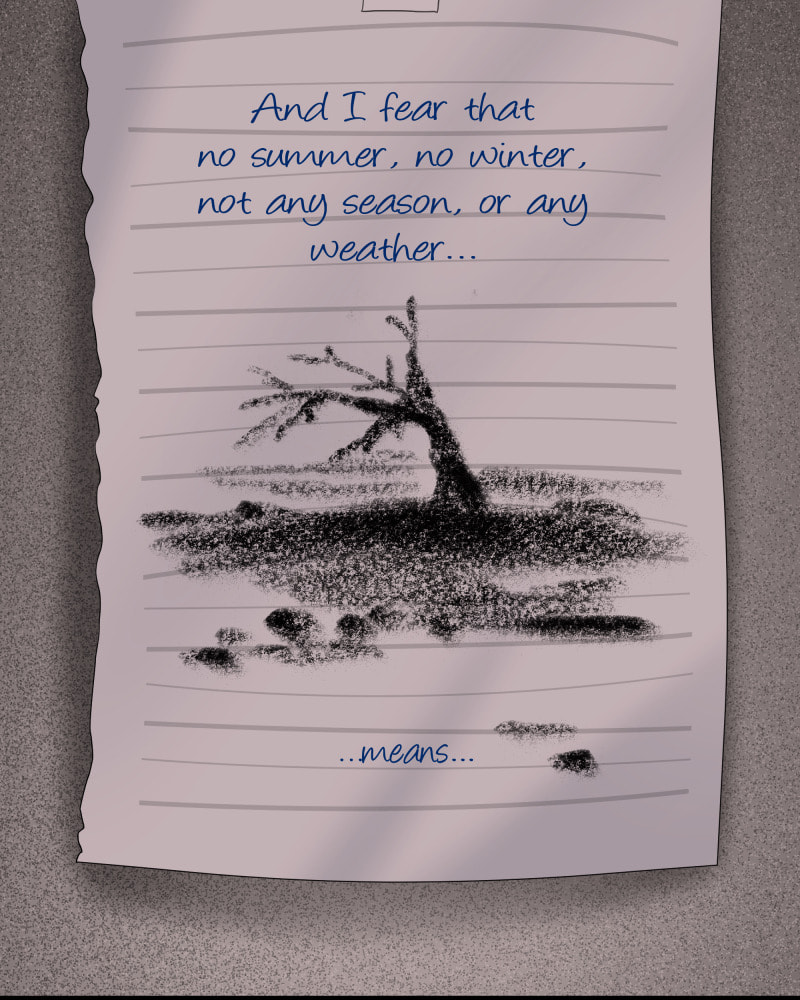 And I fear that
no summer, no winter,
not any season, or any
weather...
...means...